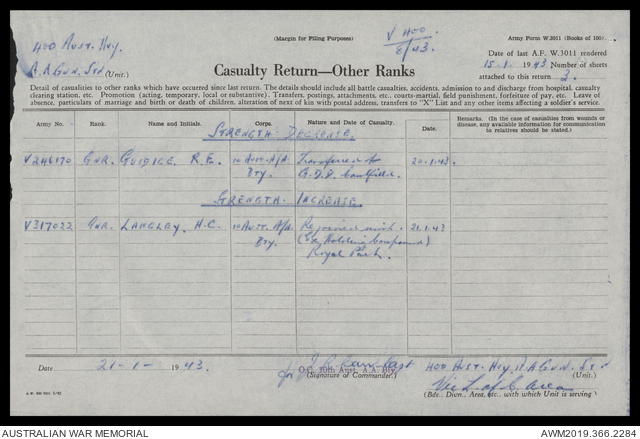 (Margin for Filing Purposes)
V 400
8/43.
Army Form W.3011 (Books of 100)
400 Aust. Hvy.
A.A. Gun. Stn (Unit.)
Date of last A.F. W.3011 rendered
15-1- 1943 Number of sheets
attached to this return 3.
Casualty Return—Other Ranks
Detail of casualties to other ranks which have occurred since last return. The details should include all battle casualties, accidents, admission to and discharge from hospital, casualty
clearing station, etc. Promotion (acting, temporary, local or substantive). Transfers, postings, attachments, etc., courts-martial, field punishment, forfeiture of pay, etc. Leave of
absence, particulars of marriage and birth or death of children, alteration of next of kin with postal address, transfers to "X" List and any other items affecting a soldier's service.
Army No. Rank. Name and Initials. Corps. Nature and Date of Casualty. Date. Remarks. (In the case of casualties from wounds or disease, any available information for communication to relatives should be stated.)
STRENGTH DECREASE.
V246170 GNR. GUIDICE R.E. 10 Aust. A/A. Bty. Transferred to G.D.D. Caulfield. 20.1.43.
STRENGTH INCREASE
V317022 GNR. LANGLEY, H.C. 10 Aust. A/A. Bty. Rejoined unit. (Ex Holding Compound) Royal Park. 21.1.43
Date 21-1- 1943.
for Capt
O.C. 10th Aust. A.A. Bty.
(Signature of Commander.)
400 Aust. Hvy. A.A Gun. Stn
(Unit.)
Vic L. of C. Area
(Bde., Divn., Area, etc., with which Unit is serving)
AUSTRALIAN WAR MEMORIAL
AWM2019.366.2284